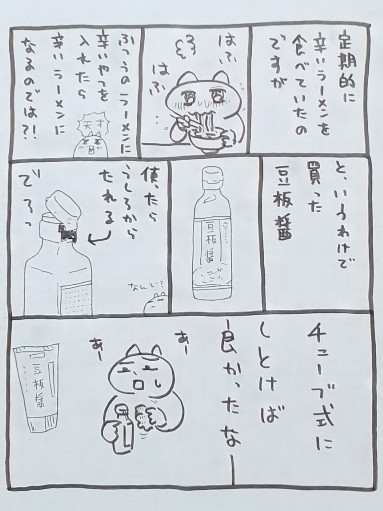 定期的に
辛いラーメンを
食べていたの
ですが
はふ
はふ
ふつうのラーメンに
辛いやつを
入れたら
辛いラーメンに
なるのでは?!
天才
と、いうわけで
買った
豆板醤
豆板醤
使ったら
うしろから
たれる
でろっ
なんで?
チューブ式に
しとけば
良かったなー
あー
あー
豆板醤